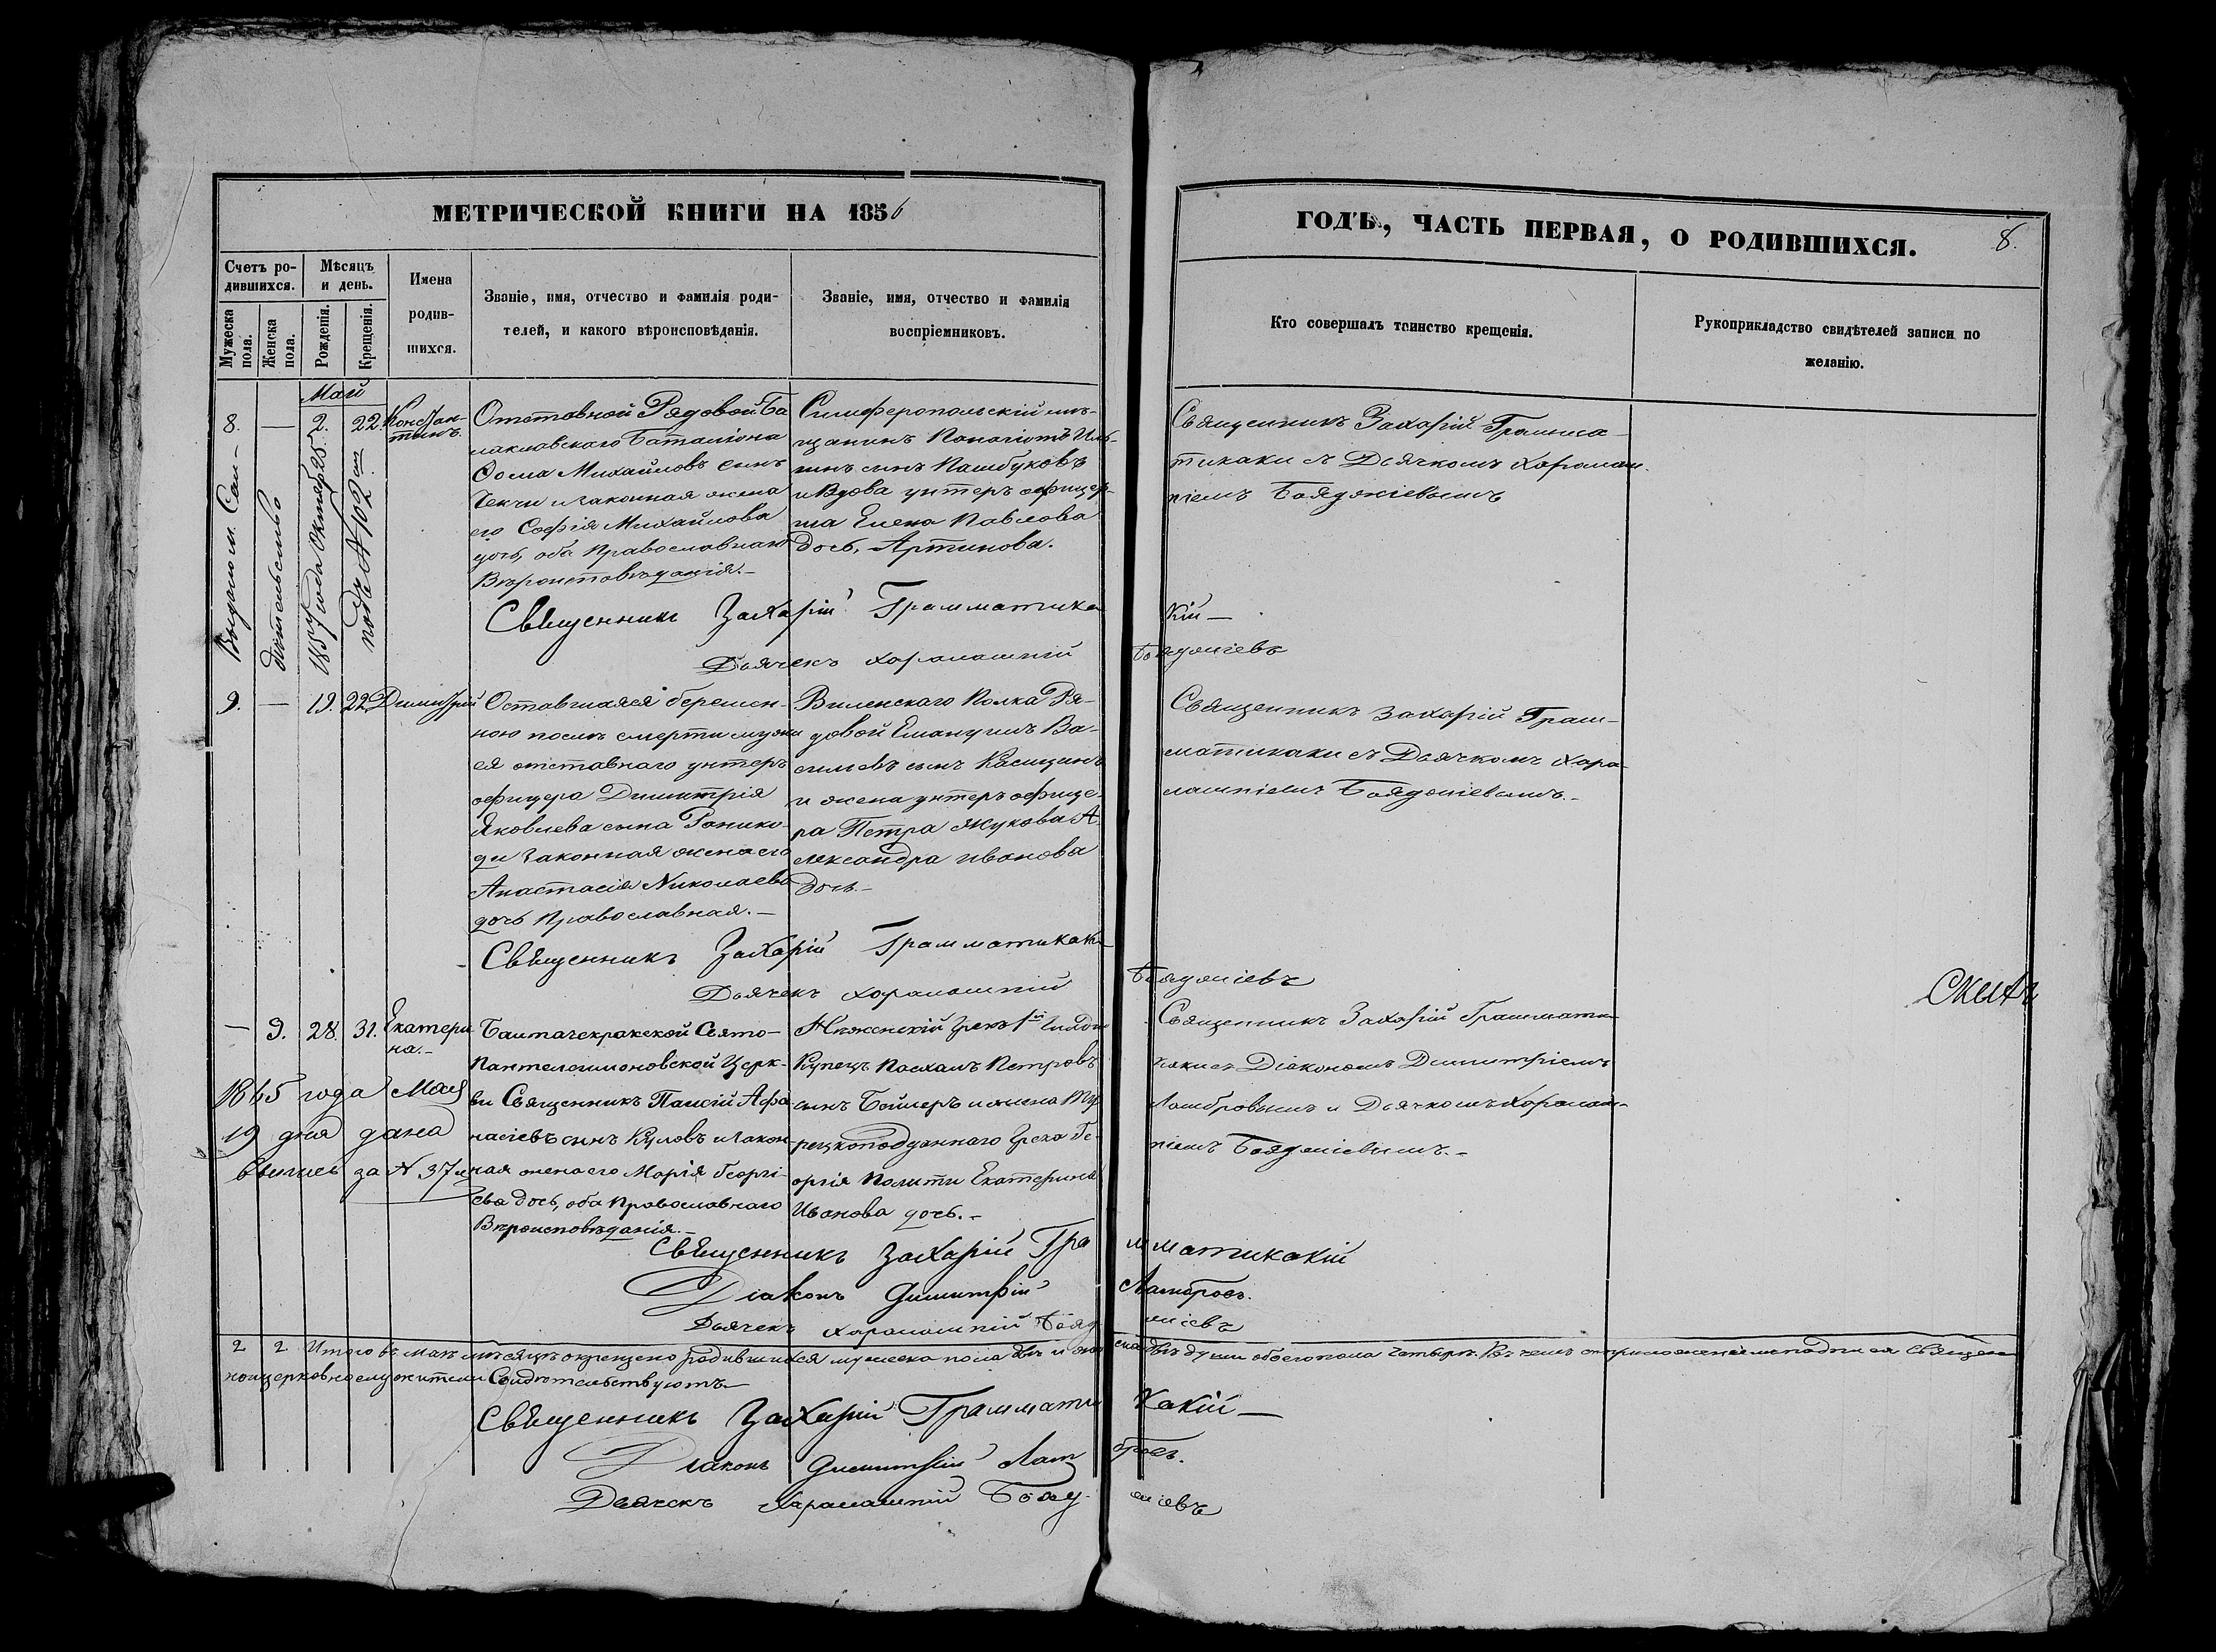 МЕТРИЧЕСКОЙ КНИГИ НА 1856
ГОДЪ, ЧАСТЬ ПЕРВАЯ, О РОДИВШИХСЯ.
8.
Счетъ ро-
дившихся.
Мѣсяцъ
и день.
Мужеска
пола.
Женска
пола.
Рожденія.
Крещенія.
Имена
родив-
шихся.
Званіе, имя, отчество и фамилія роди-
телей, и какого вѣроисповѣданія.
Званіе, имя, отчество и фамилія
воспріемниковъ.
Кто совершалъ таинство крещенія.
Рукоприкладство свидѣтелей записи по
желанію.
Май
8. — 2. 22.
Констан-
тинъ.
Отставной Рядовой Ба
лаклавскаго Баталіона
Михайловъ сынъ
и законная жена
его Софія Михайлова
дочь, оба Православнаго
Вѣроисповѣданія.—
Симферопольскій мѣ-
щанинъ Панагіотъ Иль-
инъ сынъ Пашбуковъ
и Вдова унтеръ офицер-
ша Елена Павлова
дочь, Артинова.
Священникъ Захарій Грамма-
тикаки съ Дьячкомъ Харалам-
піемъ Бояджіевымъ
1857 года Октября 25
подъ № 102
Священникъ Захарій Грамматика
кій —
Дьячекъ Харалампій
Бояджіевъ
9. — 19. 22. Димитрій
Оставшаяся беремен-
ною послѣ смерти мужа
ея отставнаго унтеръ
офицера Димитрія
Яковлева сына
законная жена его
Анастасія Николаева
дочь Православная.—
Виленскаго Полка Ря-
довой Емануилъ Ва-
сильевъ сынъ
и жена унтеръ офице-
ра Петра Жукова А-
лександра Иванова
дочь.—
Священникъ Захарій Грам-
матикаки съ Дьячкомъ Хара-
лампіемъ Бояджіевымъ.—
Священникъ Захарій Грамматикаки
Дьячекъ Харалампій
Бояджіевъ
— 9. 28. 31.
Екатери
на.—
Свято-
Пантелеимоновской Церк-
ви Священникъ Паисій Афа
насіевъ сынъ Куловъ и закон-
ная жена его Марія Георгі-
ева дочь, оба Православнаго
Вѣроисповѣданія.—
Нѣжинскій Грекъ 1й Гильдіи
Купецъ Пасхалъ Петровъ
сынъ и жена Ту
рецкоподданнаго Грека Ге-
оргія Полити Екатерина
Иванова дочь.—
Священникъ Захарій Граммати-
каки съ Діакономъ Димитріемъ
Ламбровымъ и Дьячкомъ Харалам-
піемъ Бояджіевымъ.—
1865 года Мая
19 дня дана
за № 37
Священникъ Захарій Гра
мматикакій
Діаконъ Димитрій
Ламбровъ.
Дьячекъ Харалампій Бояд
жіевъ
2 2 Итого въ маѣ мѣсяцѣ окрещено родившихся мужеска пола двѣ и жен
ска двѣ души обоего пола четыре. Въ чемъ Священ
ноцерковнослужители Свидѣтельствуютъ.—
Священникъ Захарій Граммати
какій —
Діаконъ Димитрій Лам
бровъ.
Дьячекъ Харалампій Бояд
жіевъ